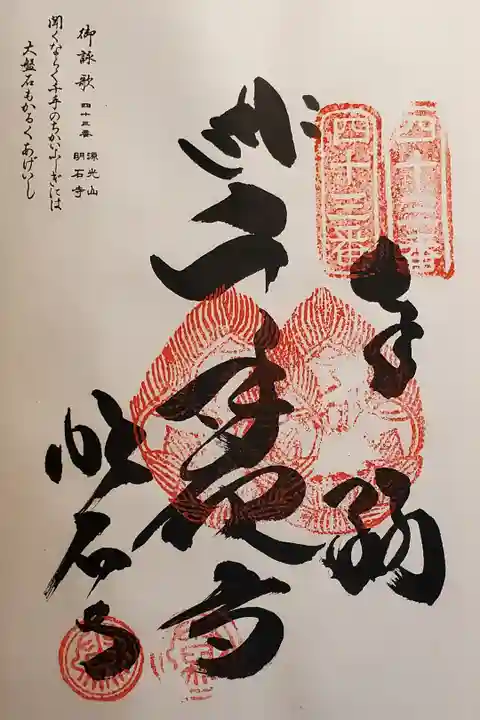 四十三番
四十三番
奉納
千手観音
明石寺
御詠歌 四十三番 源光山 明石寺
聞くならく千手のちかいふしぎには
大盤石もかろくあげいし